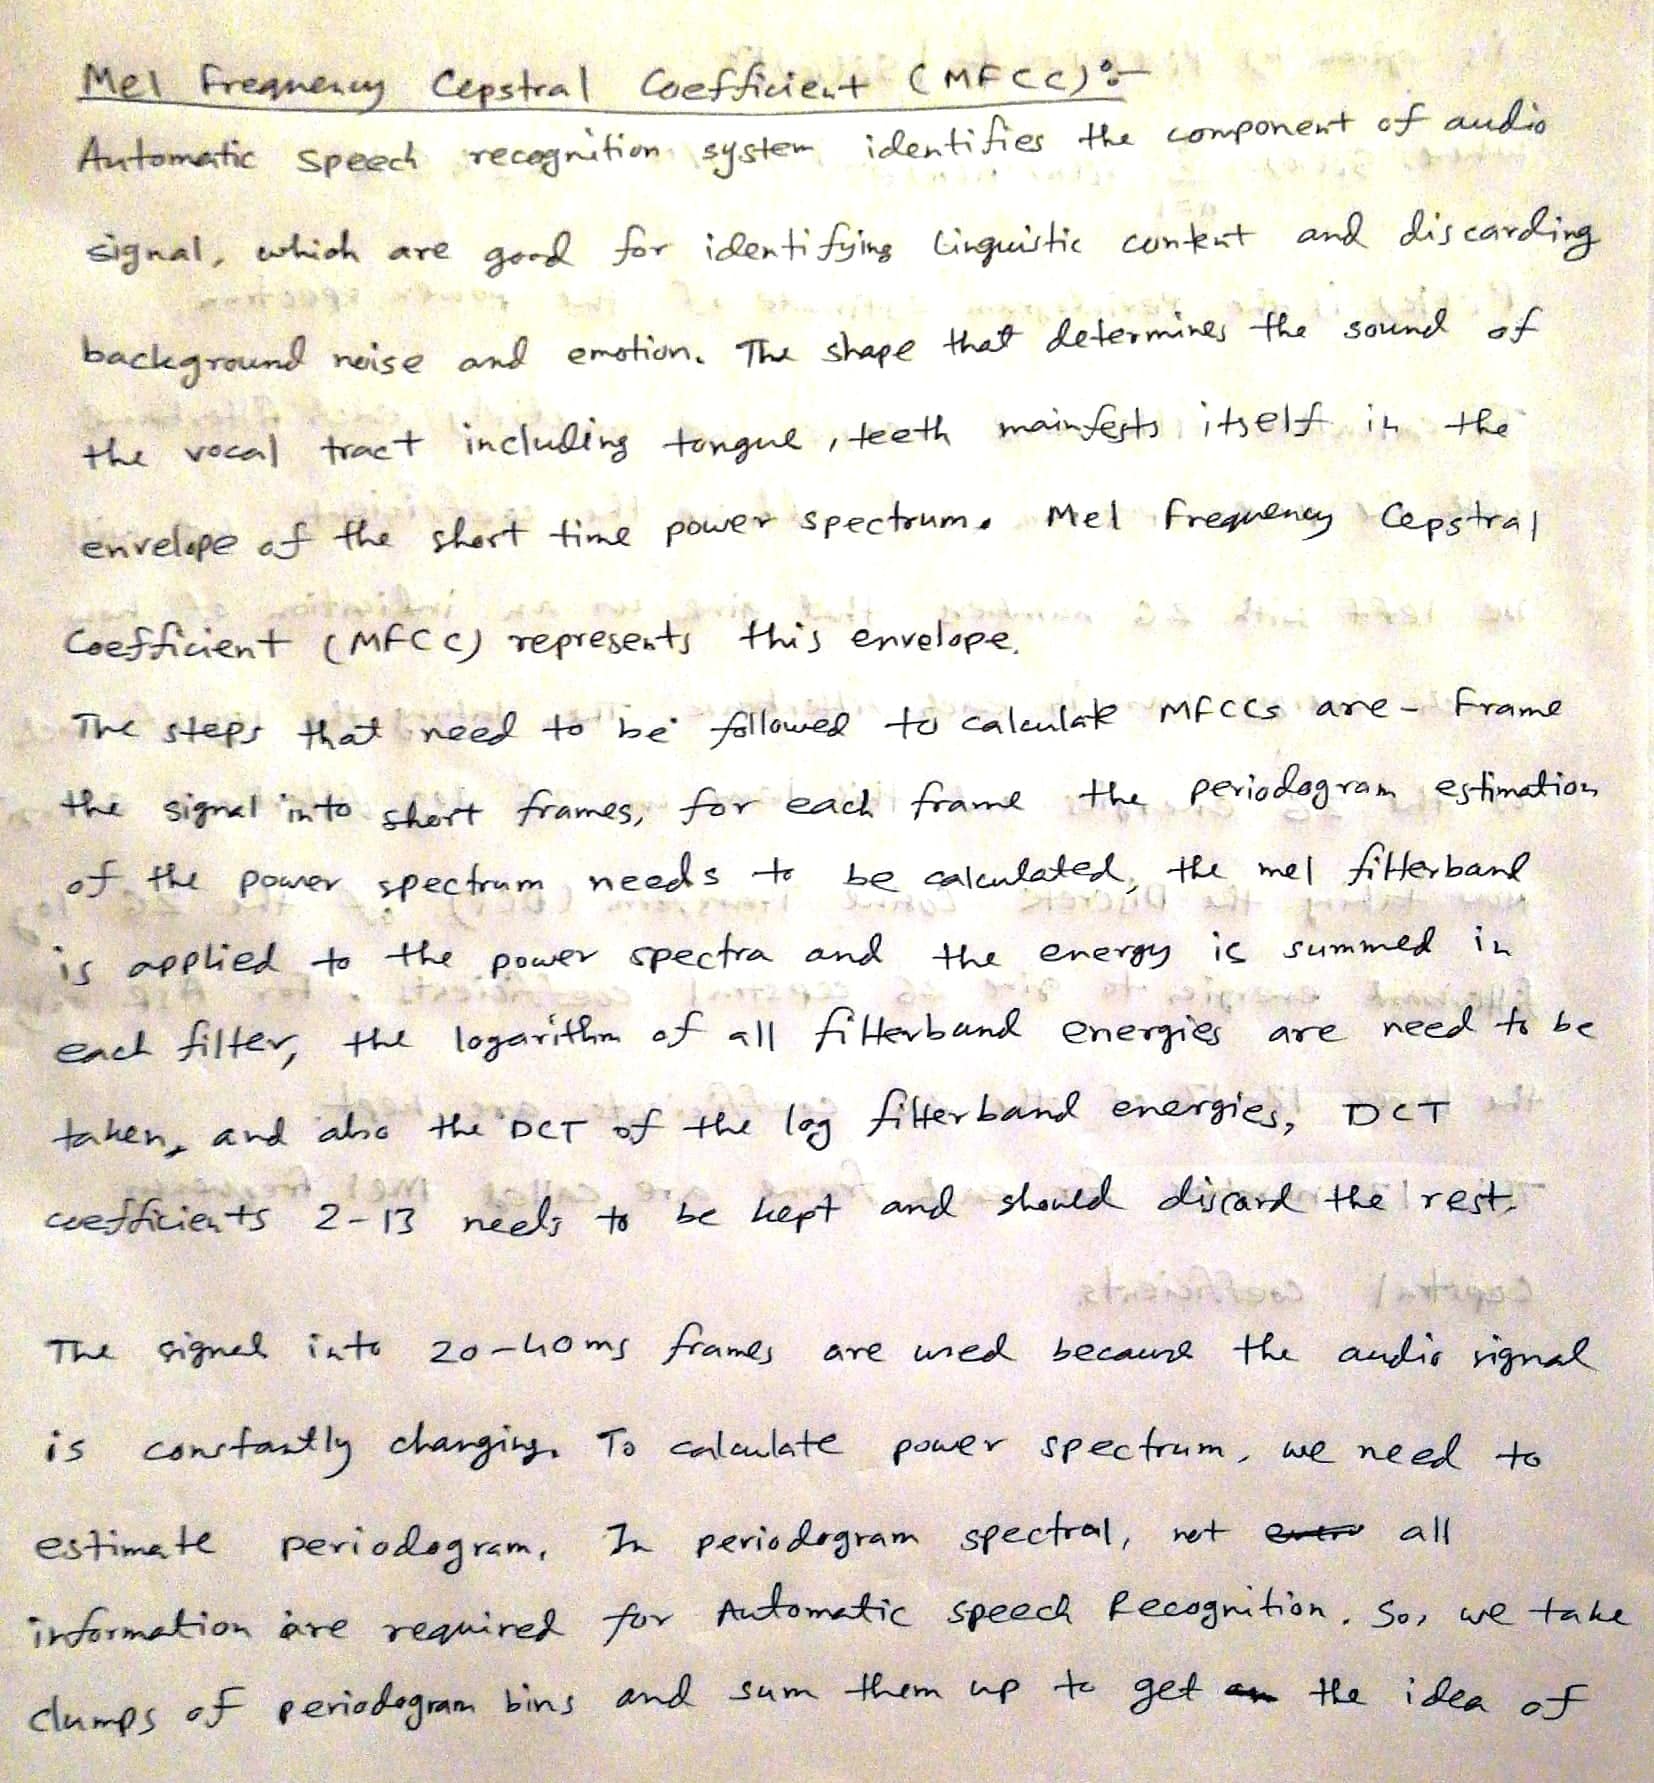 Mel Frequency Cepstral Coefficient (MFCC):-
Automatic speech recognition system identifies the component of audio
signal, which are good for identifying linguistic content and discarding
background noise and emotion. The shape that determines the sound of
the vocal tract including tongue, teeth mainfests itself in the
envelope of the short time power spectrum. Mel Frequency Cepstral
Coefficient (MFCC) represents this envelope.
The steps that need to be followed to calculate MFCCs are - Frame
the signal into short frames, for each frame the periodogram estimation
of the power spectrum needs to be calculated, the mel filterband
is applied to the power spectra and the energy is summed in
each filter, the logarithm of all filterband energies are need to be
taken, and also the DCT of the log filterband energies, DCT
coefficients 2-13 needs to be kept and should discard the rest.
The signal into 20-40ms frames are used because the audio signal
is constantly changing. To calculate power spectrum, we need to
estimate periodogram. In periodogram spectral, not all
information are required for Automatic speech Recognition. So, we take
clumps of periodogram bins and sum them up to get the idea of